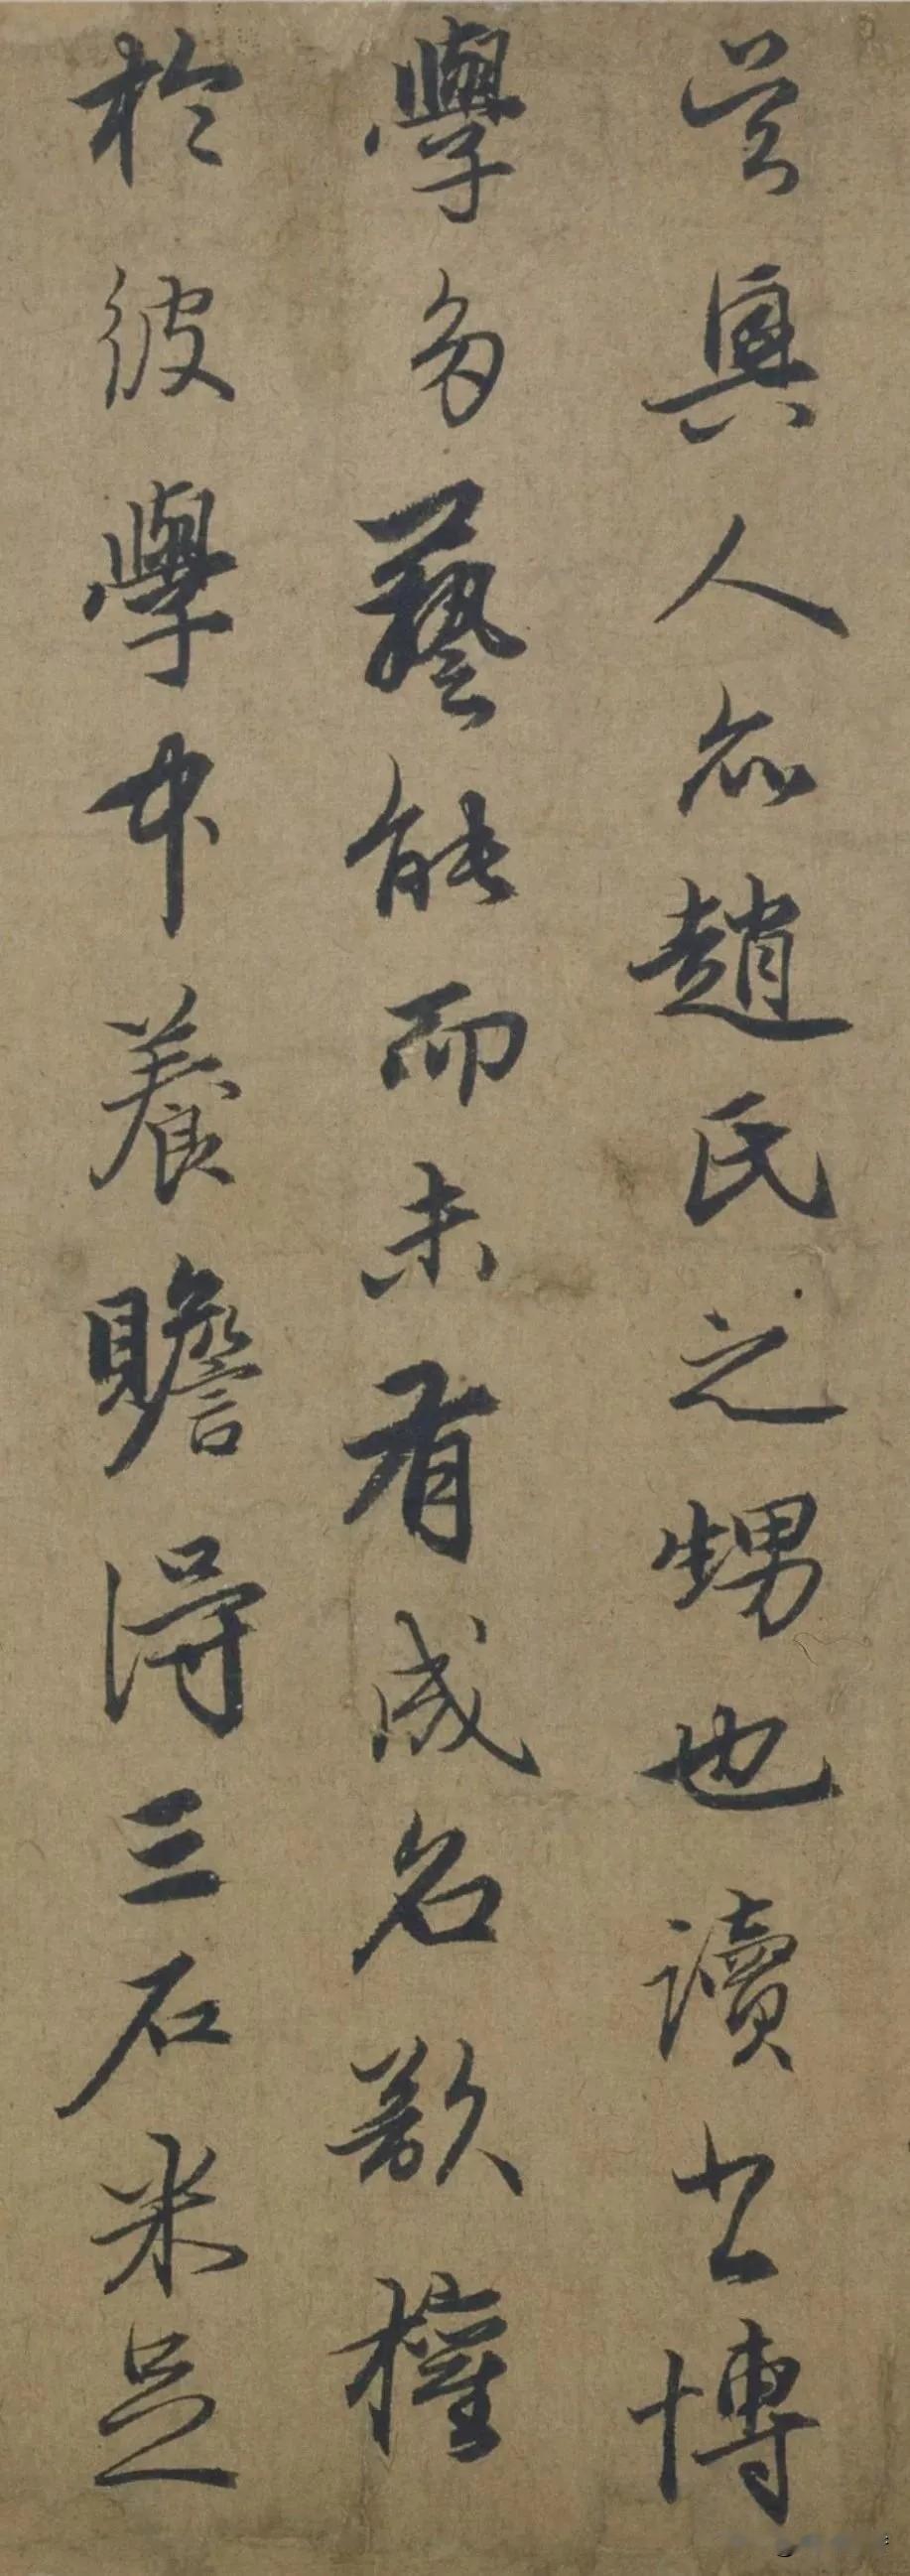 吴興人亦趙氏之甥也讀書博
學多藝能而未有成名欲權
於彼學中養贍得三石米足